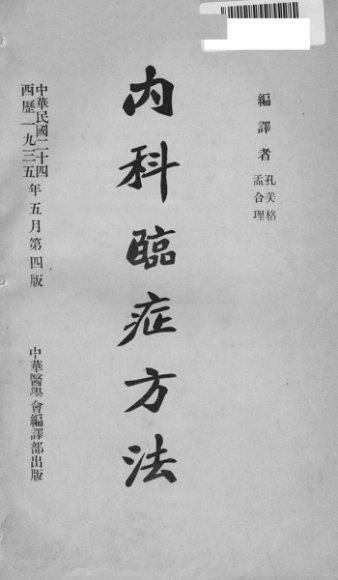 編譯者
孔美格
孟合理
內科臨症方法
中華民國二十四
西歷一九三五
年五月第四版
中華醫學會編譯部出版